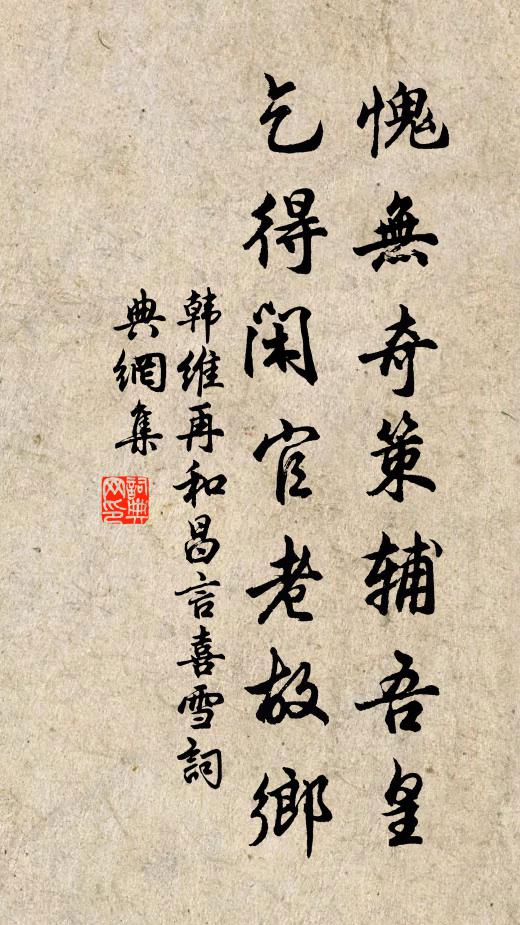 愧無奇策辅吾皇
乞得闲官老故鄉
韩维再和昌言喜雪詞
典網集
詞典网印